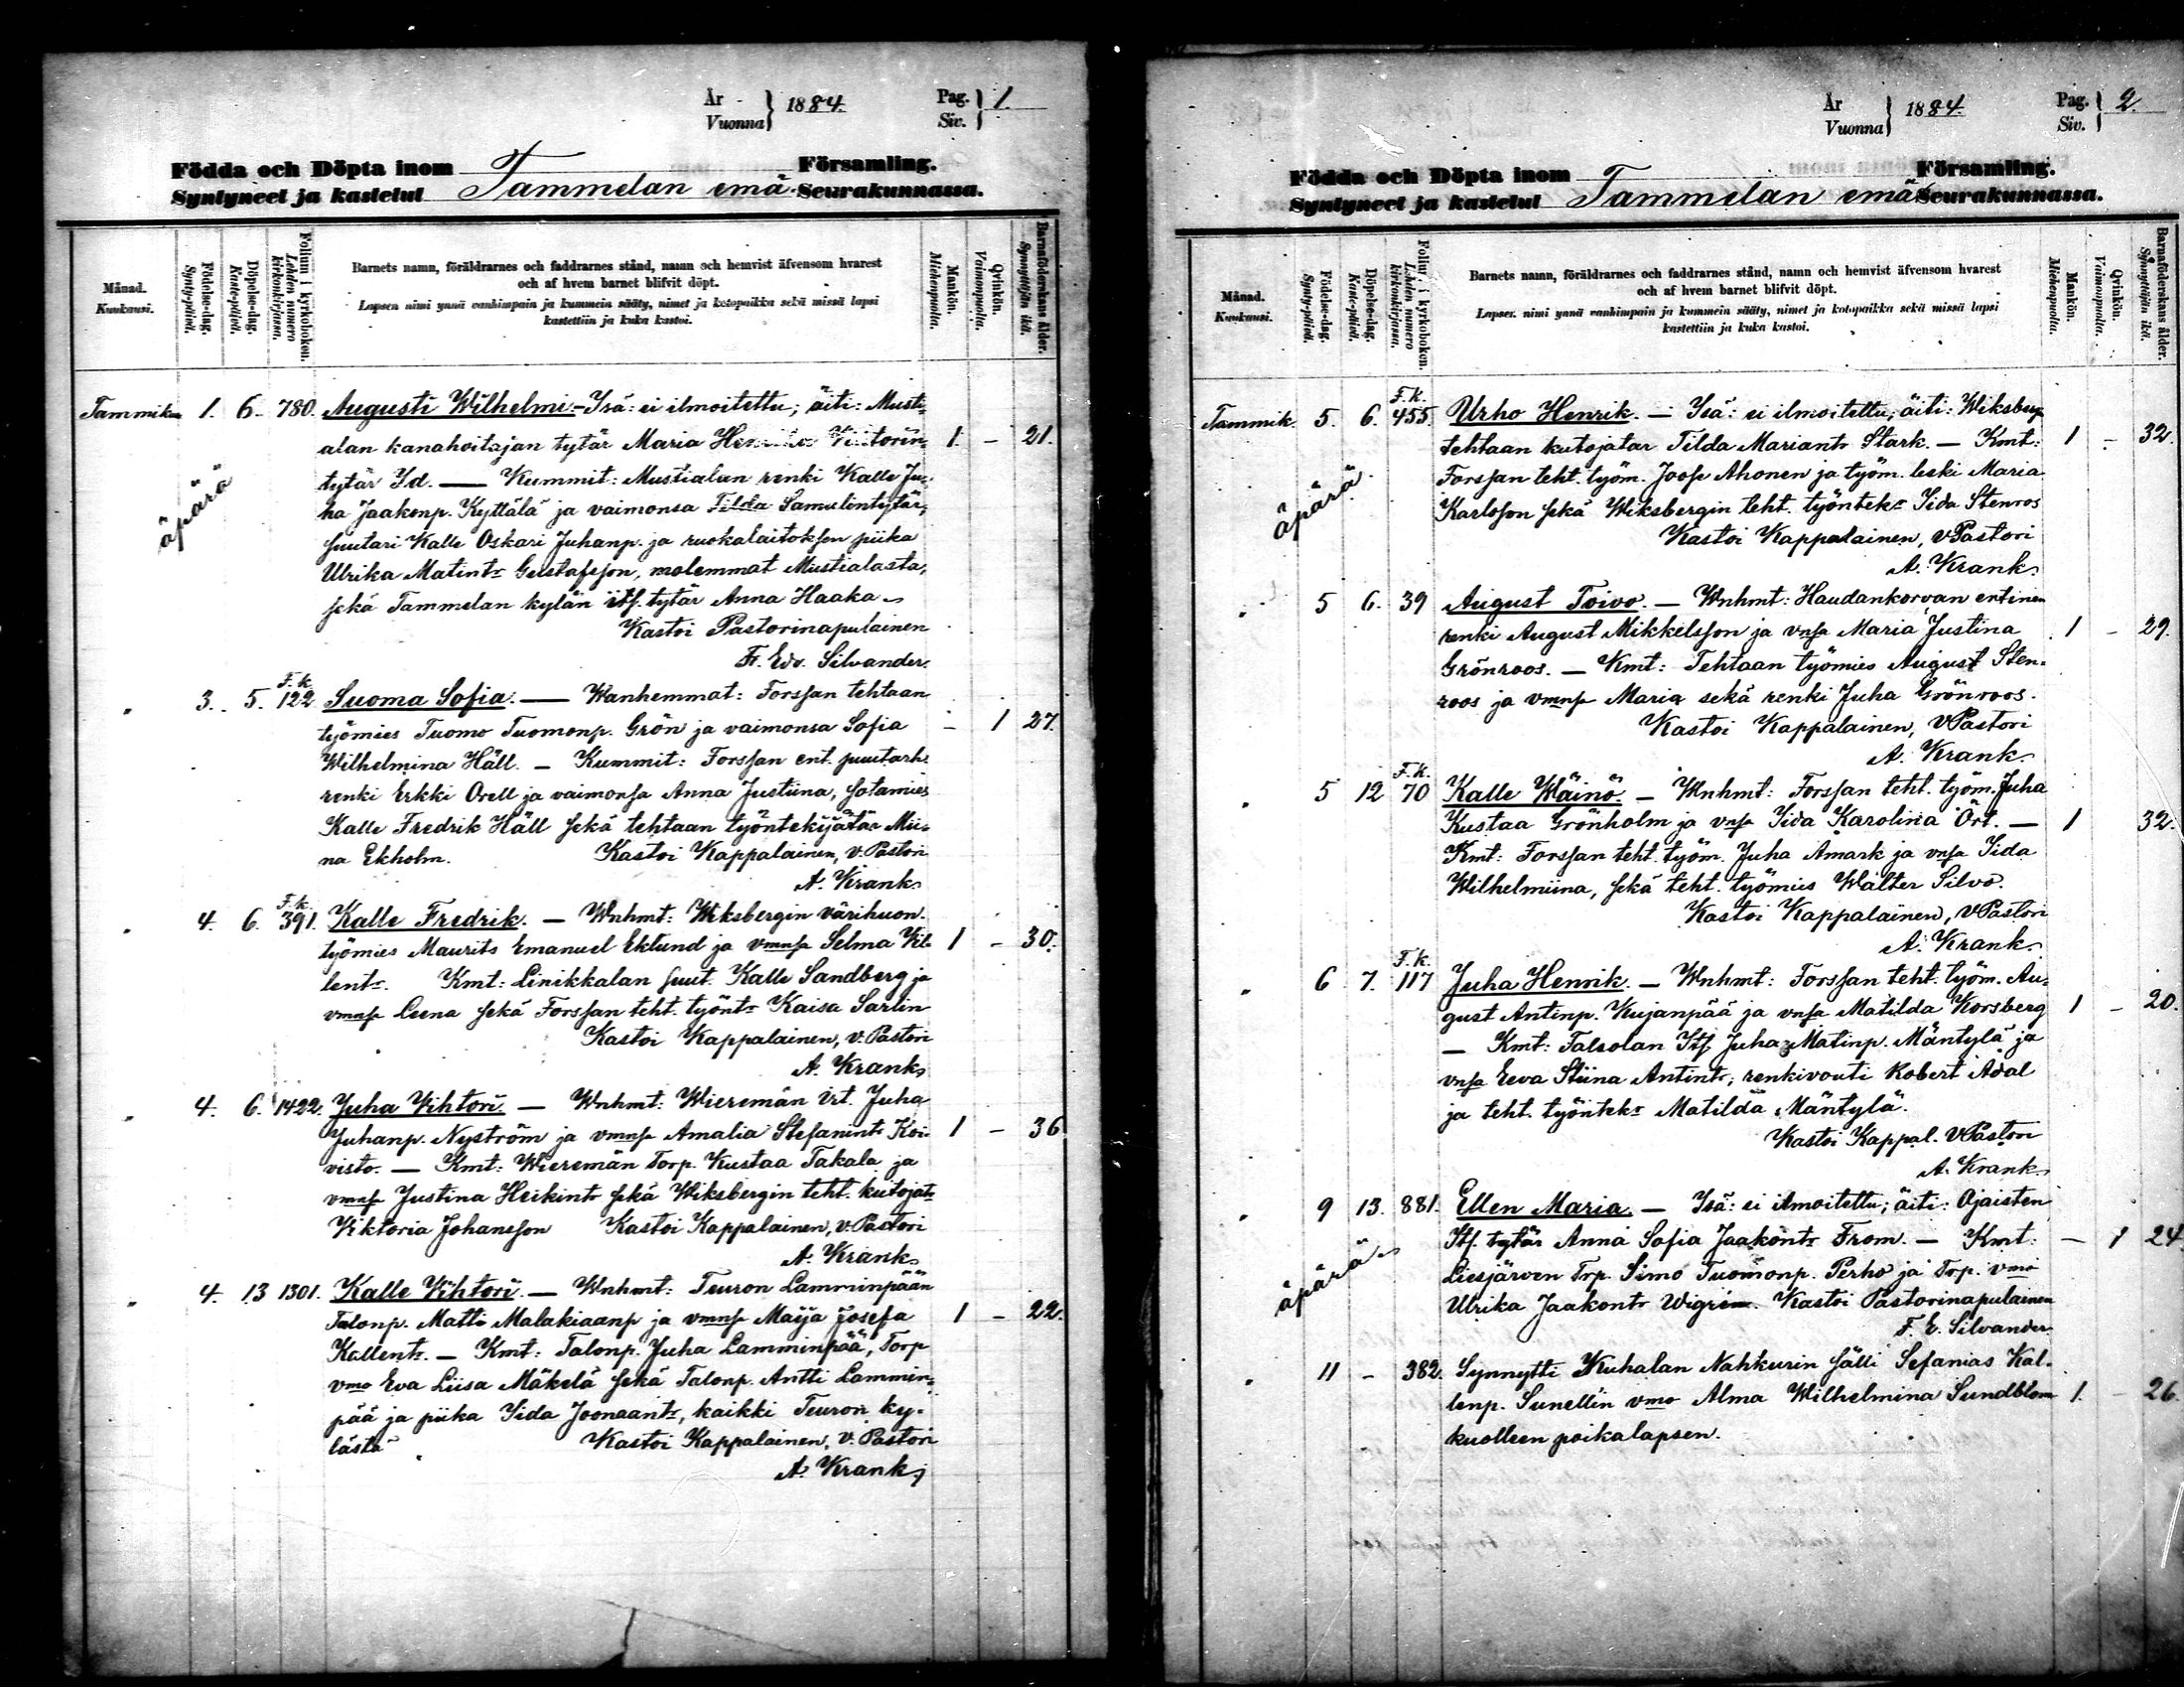 År Vuonna } 1884. Pag. Siv. } 1.
Födda och Döpta inom Församling.
Syntyneet ja kastetut Tammelan emä Seurakunnassa.
Månad. Kuukausi.
Födelse-dag. Synty-päivä.
Döpelse-dag. Kaste-päivä.
Folium i kyrkoboken. Lehden numero kirkonkirjassa.
Barnets namn, föräldrarnes och faddrarnes stånd, namn och hemvist äfvensom hvarest
och af hvem barnet blifvit döpt.
Lapsen nimi ynnä vanhimpain ja kummein sääty, nimet ja kotopaikka sekä missä lapsi
kastettiin ja kuka kastoi.
Mankön. Miehenpuolta.
Qvinkön. Vaimonpuolta.
Barnaföderskans ålder. Synnyttäjän ikä.
Tammik. 1. 6. 780. Augusti Wilhelmi. - Isä: ei ilmoitettu; äiti: Musti-
alan kanahoitajan tytär Maria Viktorin 1. - 21.
tytär Id. — Kummit: Mustialan renki Kalle Ju-
ha Jaakonp. Kyttälä ja vaimonsa Tilda Samulintytär,
suutari Kalle Oskari Juhanp. ja ruokalaitoksen piika
Ulrika Matintr Gustafsson, molemmat Mustialasta,
sekä Tammelan kylän itf. tytär Anna Haaka
äpärä
Kastoi Pastorinapulainen
Fr. Edv. Silvander.
F.k.
" 3. 5. 122 Suoma Sofia. — Wanhemmat: Forssan tehtaan
työmies Tuomo Tuomonp. Grön ja vaimonsa Sofia - 1 27.
Wilhelmina Häll. — Kummit: Forssan ent. puutarh.
renki Erkki Orell ja vaimonsa Anna Justiina, sotamies
Kalle Fredrik Häll sekä tehtaan työntekijätär Mii-
na Ekholm. Kastoi Kappalainen, v. Pastori
A. Krank.
F.k.
" 4. 6. 391. Kalle Fredrik. — Wnhmt: Wiksbergin värihuon.
työmies Maurits Emanuel Eklund ja vmnsa Selma Vil- 1 - 30.
lentr. Kmt: Linikkalan suut. Kalle Sandberg ja
vmnsa Leena sekä Forssan teht. työntr Kaisa Sarlin
Kastoi Kappalainen, v. Pastori
A. Krank
" 4. 6. 1422. Juha Vihtori. — Wnhmt: Wieremän irt. Juha
Juhanp. Nyström ja vmnsa Amalia Stefanintr Koi- 1 - 36
visto. — Kmt: Wieremän Torp. Kustaa Takala ja
vmnsa Justina Heikintr sekä Wiksbergin teht. kutojatr
Viktoria Johansson Kastoi Kappalainen, v. Pastori
A. Krank
" 4. 13 1301. Kalle Vihtori. — Wnhmt: Teuron Lamminpään
Talonp. Matti Malakiaanp ja vmnsa Maija Josefa 1 - 22.
Kallentr. — Kmt: Talonp. Juha Lamminpää, Torp
vmo Eva Liisa Mäkelä sekä Talonp. Antti Lammin-
pää ja piika Iida Joonaantr, kaikki Teuron ky-
lästä Kastoi Kappalainen, v. Pastori
A. Krank
År Vuonna } 1884. Pag. Siv. } 2.
Födda och Döpta inom Församling.
Syntyneet ja kastetut Tammelan emä Seurakunnassa.
Månad. Kuukausi.
Födelse-dag. Synty-päivä.
Döpelse-dag. Kaste-päivä.
Folium i kyrkoboken. Lehden numero kirkonkirjassa.
Barnets namn, föräldrarnes och faddrarnes stånd, namn och hemvist äfvensom hvarest
och af hvem barnet blifvit döpt.
Lapsen nimi ynnä vanhimpain ja kummein sääty, nimet ja kotopaikka sekä missä lapsi
kastettiin ja kuka kastoi.
Mankön. Miehenpuolta.
Qvinkön. Vaimonpuolta.
Barnaföderskans ålder. Synnyttäjän ikä.
F.k.
Tammik. 5. 6. 455. Urho Henrik. — Isä: ei ilmoitettu; äiti: Wiksberg.
tehtaan kutojatar Tilda Mariantr Stark. — Kmt: 1 - 32.
Forssan teht. työm. Joose Ahonen ja työm. leski Maria
äpärä
Karlsson sekä Wiksbergin teht. työntekr Iida Stenros
Kastoi Kappalainen, vPastori
A. Krank.
" 5 6. 39 August Toivo. — Wnhmt: Haudankorvan entinen
renki August Mikkelsson ja vnsa Maria Justina 1 - 29.
Grönroos. — Kmt: Tehtaan työmies August Sten-
roos ja vmnsa Maria sekä renki Juha Grönroos.
Kastoi Kappalainen, vPastori
A. Krank.
F.k.
" 5 12 70 Kalle Wäinö. — Wnhmt: Forssan teht. työm. Juha
Kustaa Grönholm ja vnsa Iida Karolina Ört. — 1 32.
Kmt: Forssan teht. työm. Juha Amark ja vnsa Iida
Wilhelmiina, sekä teht. työmies Walter Silvo.
Kastoi Kappalainen, vPastori
A. Krank.
F.k.
" 6 7. 117 Juha Henrik. — Wnhmt: Forssan teht. työm. Au-
gust Antinp. Kujanpää ja vnsa Matilda Korsberg 1 - 20.
— Kmt: Talsolan Itf Juha Matinp. Mäntylä ja
vnsa Eeva Stiina Antintr, renkivouti Robert Adal
ja teht. työntekr Matilda Mäntylä.
Kastoi Kappal. vPastori
A. Krank.
" 9 13. 881. Ellen Maria. — Isä: ei ilmoitettu; äiti: Ojaisten
Itf. tytär Anna Sofia Jaakontr From. — Kmt: - 1 24
äpärä
Liesjärven Trp. Simo Tuomonp. Perho ja Trp. vmo
Ulrika Jaakontr Wigrén. Kastoi Pastorinapulainen
F. E. Silvander
" 11 - 382. Synnytti Kuhalan Nahkurin sälli Sefanias Kal-
lenp. Sunellin vmo Alma Wilhelmina Sundblom 1. - 26.
kuolleen poikalapsen.